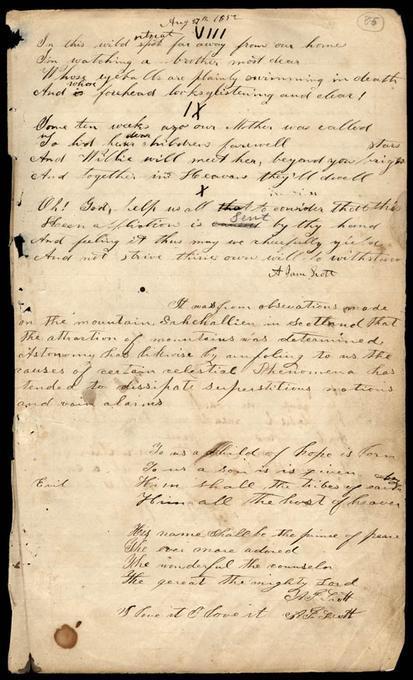 Aug 27th 1852
85
VIII
retreat
In this wild spot far away from our home
I'm watching a brother most dear
Whose eyeballs are plainly swimming in death
And whose forehead looks glistening and clear!
IX
Some ten weeks ago our Mother was called
To bid her dear children farewell
stars
And Willie will meet her, beyond yon bright
And together in Heaven they'll dwell
X
Oh! God, help us all to consider that this
Keen affliction is Sent by thy hand
And feeling it thus may we cheerfully yield
And not strive thine own will to withstand
A Jane Scott
It was from observations made
on the mountain Schehallien in Scotland that
the attraction of mountains was determined
Astonomy has likewise by unfoling to us the
causes of certain celestial Phenomena has
tended to dissipate superstitious notions
and vain alarms
To us a Child of hope is born
To us a son is is given
Him shall the tribes of earth obey
Him all the host of heaven
His name shall be the prince of peace
The ever more adored
The wonderful the counselor
The gereat the mighty Lord
A J Scott
I love it I love it A J Scott